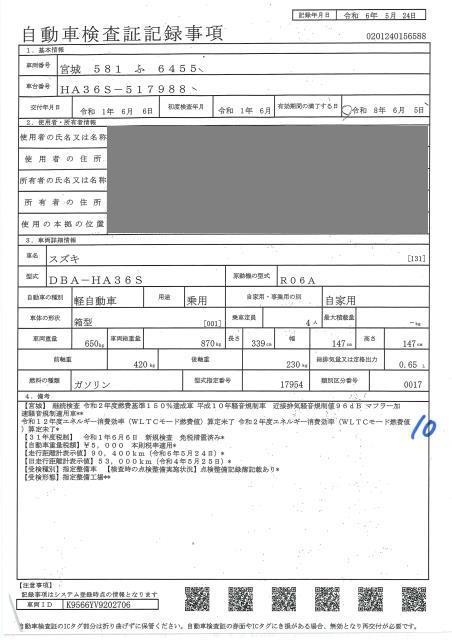 記録年月日 令和 6年 5月 24日
自動車検査証記録事項
0201240156588
1．基本情報
車両番号 宮城 581 ふ 6455
車台番号 HA36S-517988
交付年月日 令和 1年 6月 6日 初度検査年月 令和 1年 6月 有効期間の満了する日 令和 8年 6月 5日
2．使用者・所有者情報
使用者の氏名又は名称
使用者の住所
所有者の氏名又は名称
所有者の住所
使用の本拠の位置
3．車両詳細情報
車名 スズキ [131]
型式 DBA-HA36S 原動機の型式 R06A
自動車の種別 軽自動車 用途 乗用 自家用・事業用の別 自家用
車体の形状 箱型 [001] 乗車定員 4人 最大積載量 -kg
車両重量 650kg 車両総重量 870kg 長さ 339cm 幅 147cm 高さ 147cm
前軸重 420kg 後軸重 230kg 総排気量又は定格出力 0.65 L
燃料の種類 ガソリン 型式指定番号 17954 類別区分番号 0017
4．備考
【宮城】 継続検査 令和2年度燃費基準150%達成車 平成10年騒音規制車 近接排気騒音規制値96dB マフラー加
速騒音規制適用車**
令和12年度エネルギー消費効率（WLTCモード燃費値）算定未了 令和2年度エネルギー消費効率（WLTCモード燃費値
）算定未了*
【31年度税制】 令和1年6月6日 新規検査 免税措置済み*
【自動車重量税額】￥5,000 本則税率適用*
【走行距離計表示値】90,400km（令和6年5月24日）*
【旧走行距離計表示値】53,000km（令和4年5月25日）*
【受検種別】指定整備車 【検査時の点検整備実施状況】点検整備記録簿記載あり*
【受検形態】指定整備工場**
10
【注意事項】
記録事項はシステム登録時点の情報となります
車両ID K9566YV9202706
自動車検査証のICタグ部分は折り曲げずに保管ください。自動車検査証の券面やICタグにき損がある場合、無効となり再交付が必要です。